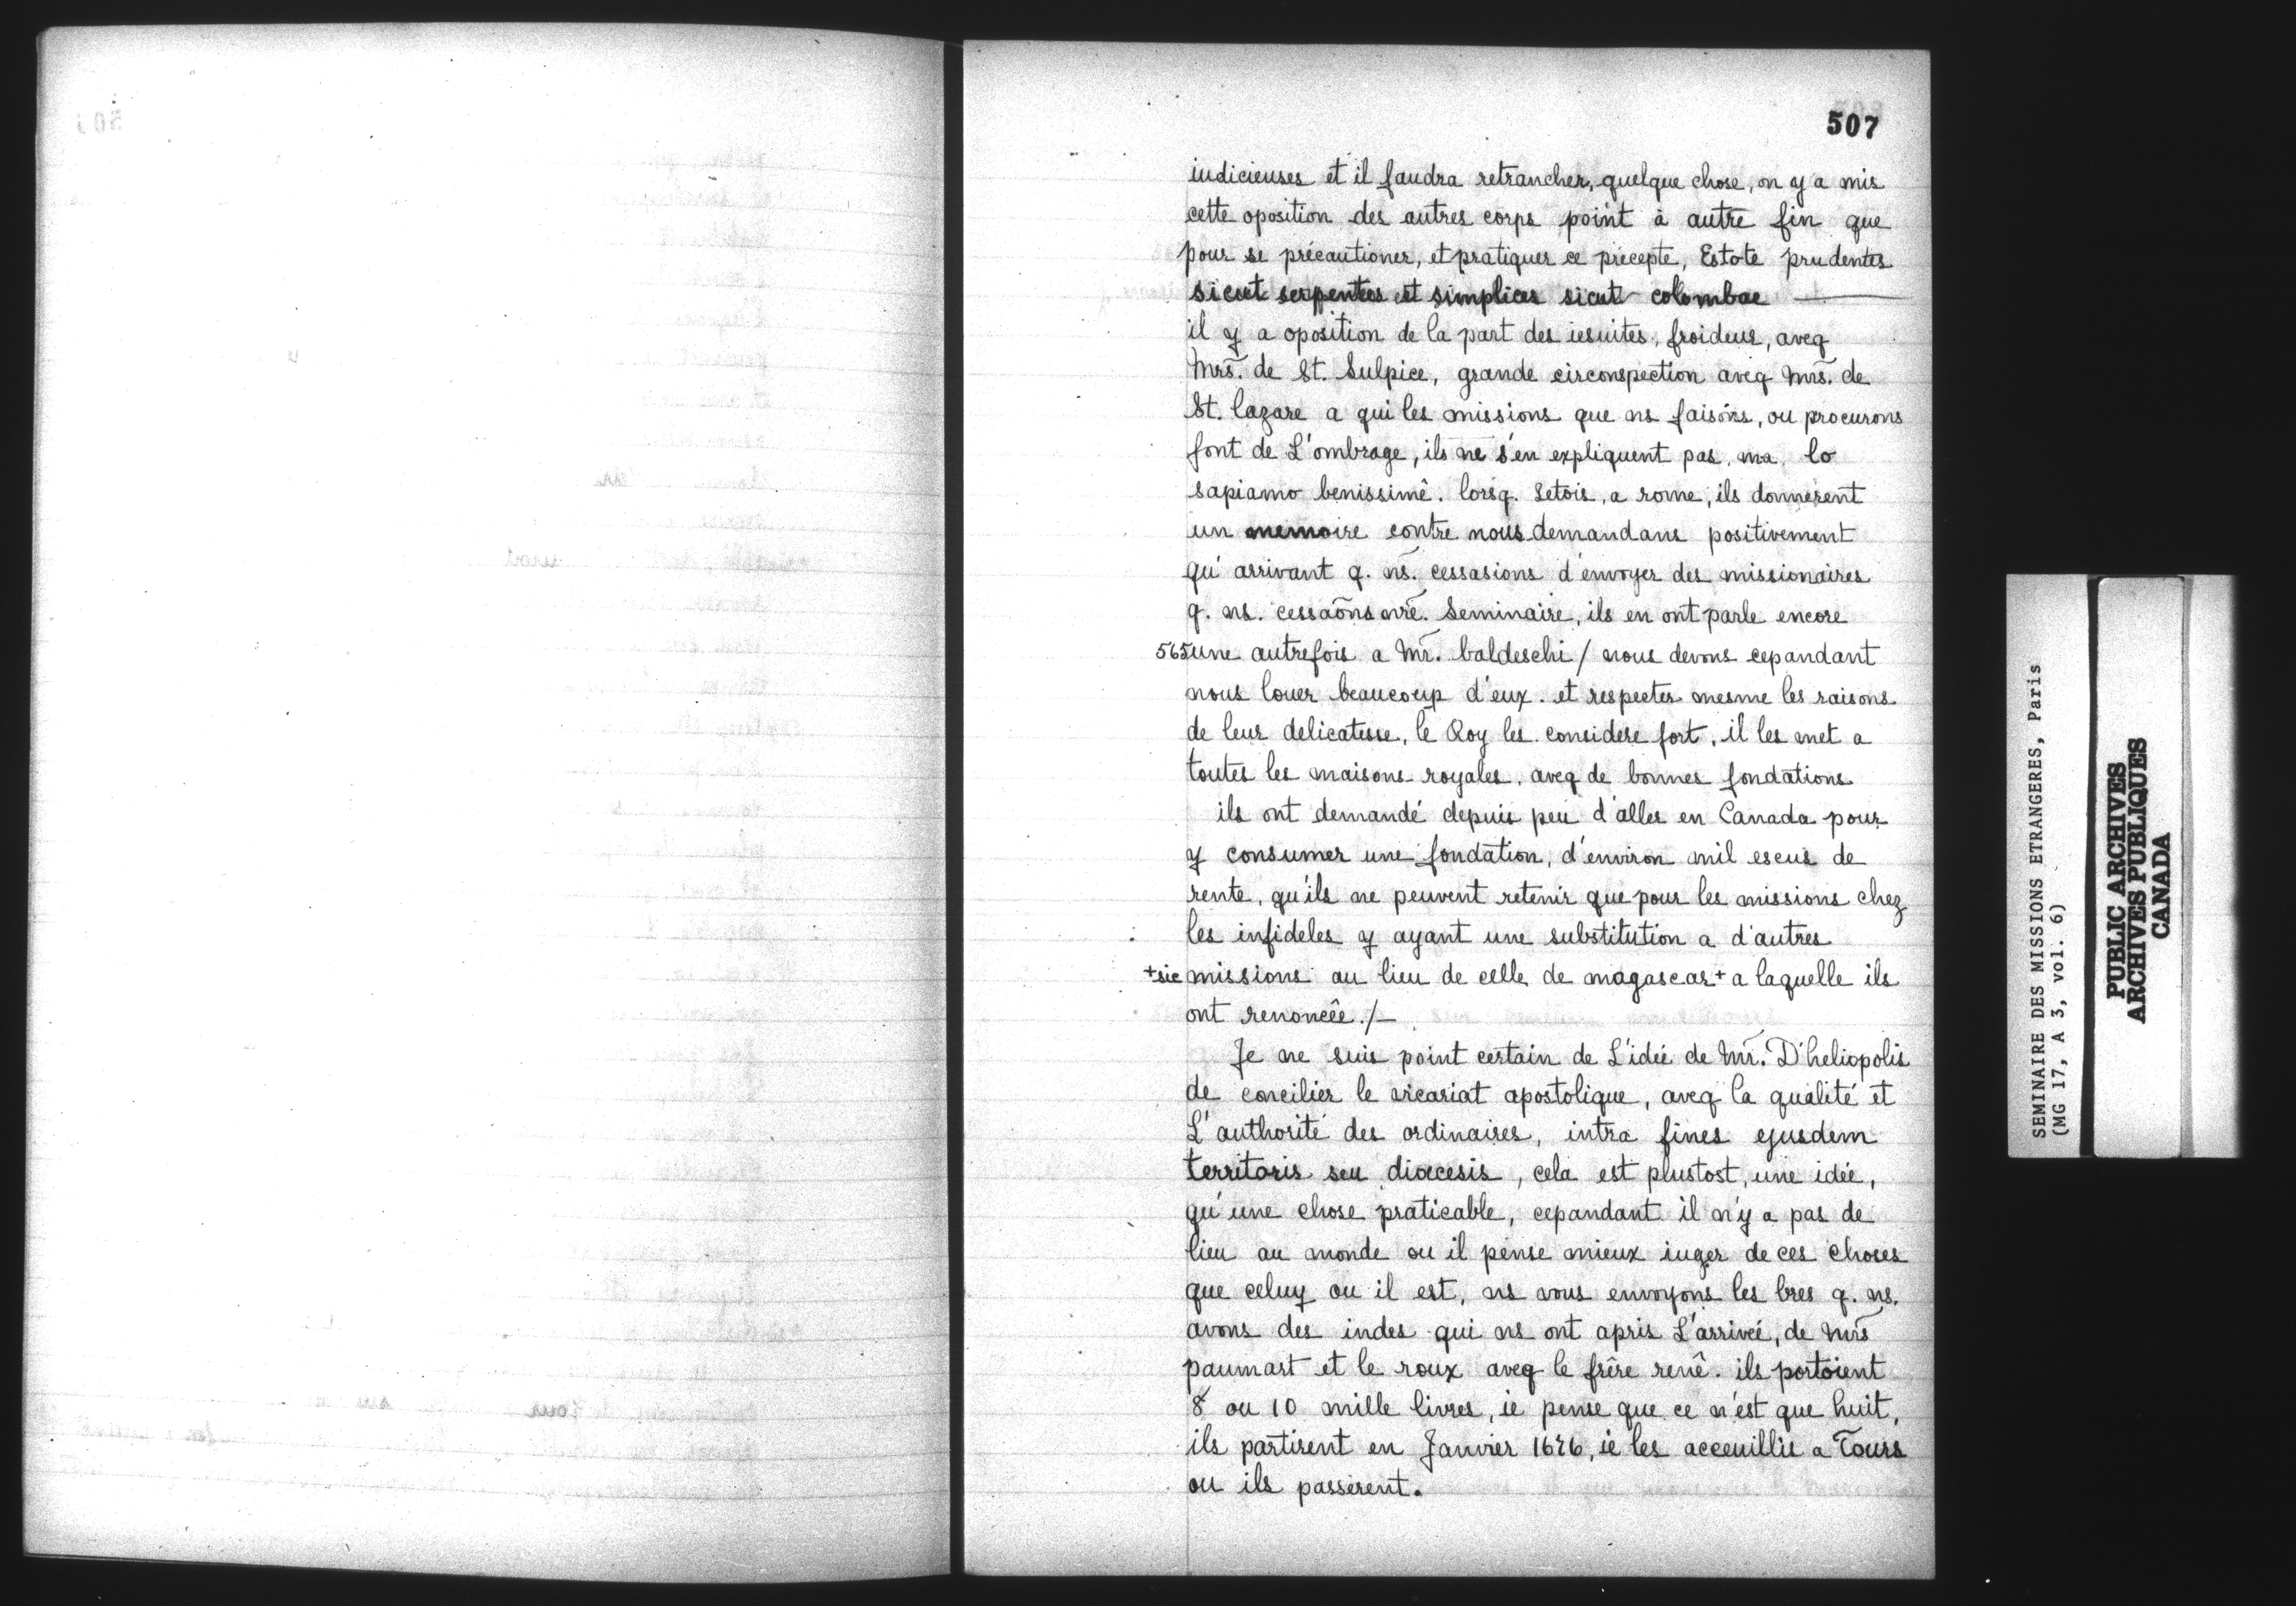 507
iudicieuses et il faudra retrancher, quelque chose, on y a mis
cette oposition des autres corps point à autre fin que
pour se précautioner, et pratiquer ce précepte, Estote prudentes
sicut serpentes et simplices sicut colombae
il y a oposition de la part des iesuites, froideur, aveq
Mrs. de St. Sulpice, grande circonspection aveq mrs. de
St. lazare a qui les missions que ns faisons, ou procurons
font de L'ombrage, ils ne s'en expliquent pas, ma lo
sapiamo benissimê. lorsq. Jetois, a rome, ils donnerent
un memoire contre nous demandans positivement
qu'arrivant q. ns. cessasions d'envoyer des missionaires
q. ns. cessaõns nrē. Seminaire, ils en ont parle encore
565 une autrefois a Mr. baldeschi / nous devons cepandant
nous louer beaucoup d'eux. et respecter mesme les raisons
de leur delicatesse, le Roy les considere fort, il les met a
toutes les maisons royales, aveq de bonnes fondations
ils ont demandé depuis peu d'aller en Canada pour
y consumer une fondation, d'environ mil escus de
rente, qu'ils ne peuvent retenir que pour les missions chez
les infideles y ayant une substitution a d'autres
+sic missions au lieu de celle de magascar+ a laquelle ils
ont renoncêe./-
Je ne suis point certain de L'idée de Mr. D'heliopolis
de concilier le vicariat apostolique, aveq la qualité et
L'authorité des ordinaires, intra fines ejusdem
territoris seu dioecesis, cela est plustost, une idée,
qu'une chose praticable, cepandant il n'y a pas de
lieu au monde ou il pense mieux iuger de ces choses
que celuy ou il est, ns vous envoyons les lres q. ns.
avons des indes qui ns ont apris L'arriveé, de Mrs
paumart et le roux aveq le frêre renê. ils portoient
8 ou 10 mille livres, ie pense que ce n'est que huit,
ils partirent en Janvier 1676, ie les acceuillis a Tours
ou ils passerent.
SEMINAIRE DES MISSIONS ETRANGERES, Paris
(MG 17, A 3, vol. 6)
PUBLIC ARCHIVES
ARCHIVES PUBLIQUES
CANADA